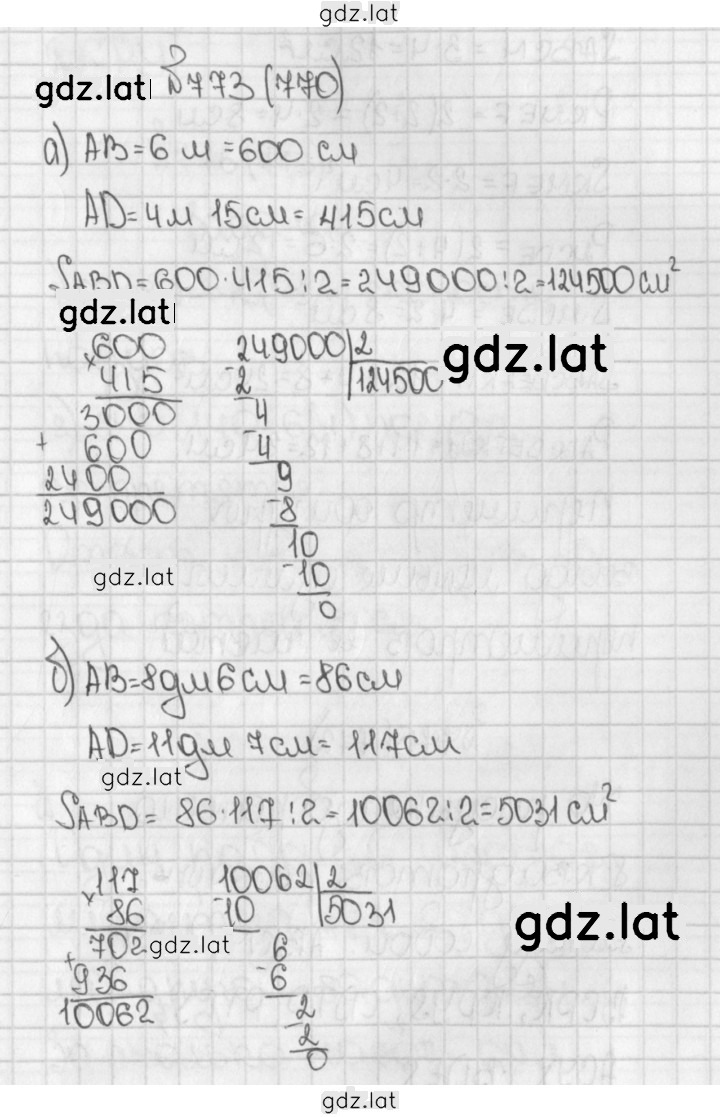 gdz.lat
gdz.lat №773 (770)
а) AB=6 м =600 см
AD=4м 15см= 415см
SABD=600·415:2=249000:2=124500см²
gdz.lat
600 249000|2 gdz.lat
×415 -2 124500
3000 4
+600 -4
2400 9
249000 -8
10
gdz.lat -10
0
б) AB=8дм6см =86см
AD=11дм 7см= 117см
gdz.lat
SABD= 86·117:2=10062:2=5031см²
×117 10062|2
86 -10 5031 gdz.lat
702 gdz.lat 6
+936 -6
10062 2
-2
0
gdz.lat